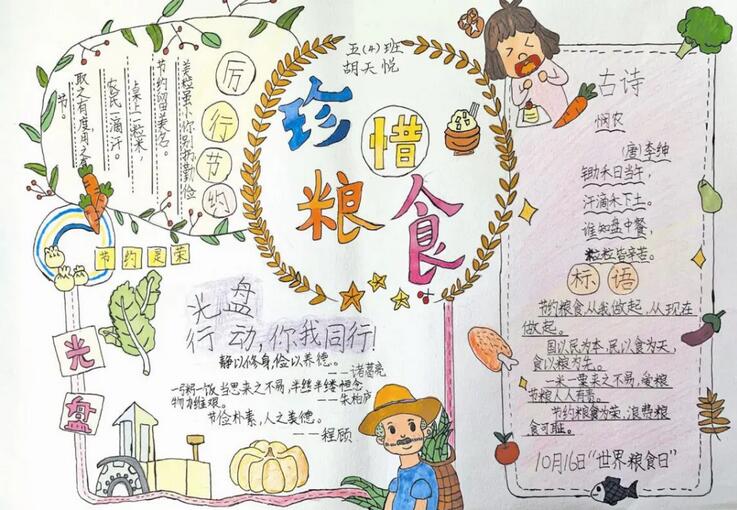 五(4)班
胡天悦
珍惜
粮食
厉行节约
美粒虽小你别扔,勤俭
节约留美名。
桌上一粒米,
农民一滴汗。
取之有度,用之有
节。
节约是荣
光盘
光盘
行动,你我同行!
静以修身,俭以养德。
——诸葛亮
一粥一饭当思来之不易,半丝半缕恒念
物力维艰。 ——朱柏庐
节俭朴素,人之美德。
——程顾
古诗
悯农
(唐)李绅
锄禾日当午,
汗滴禾下土。
谁知盘中餐,
粒粒皆辛苦。
标语
节约粮食,从我做起,从现在
做起。
国以民为本,民以食为天,
食以粮为先。
一米一粟来之不易,爱粮
节粮人人有责。
节约粮食为荣,浪费粮
食可耻。
10月16日“世界粮食日”